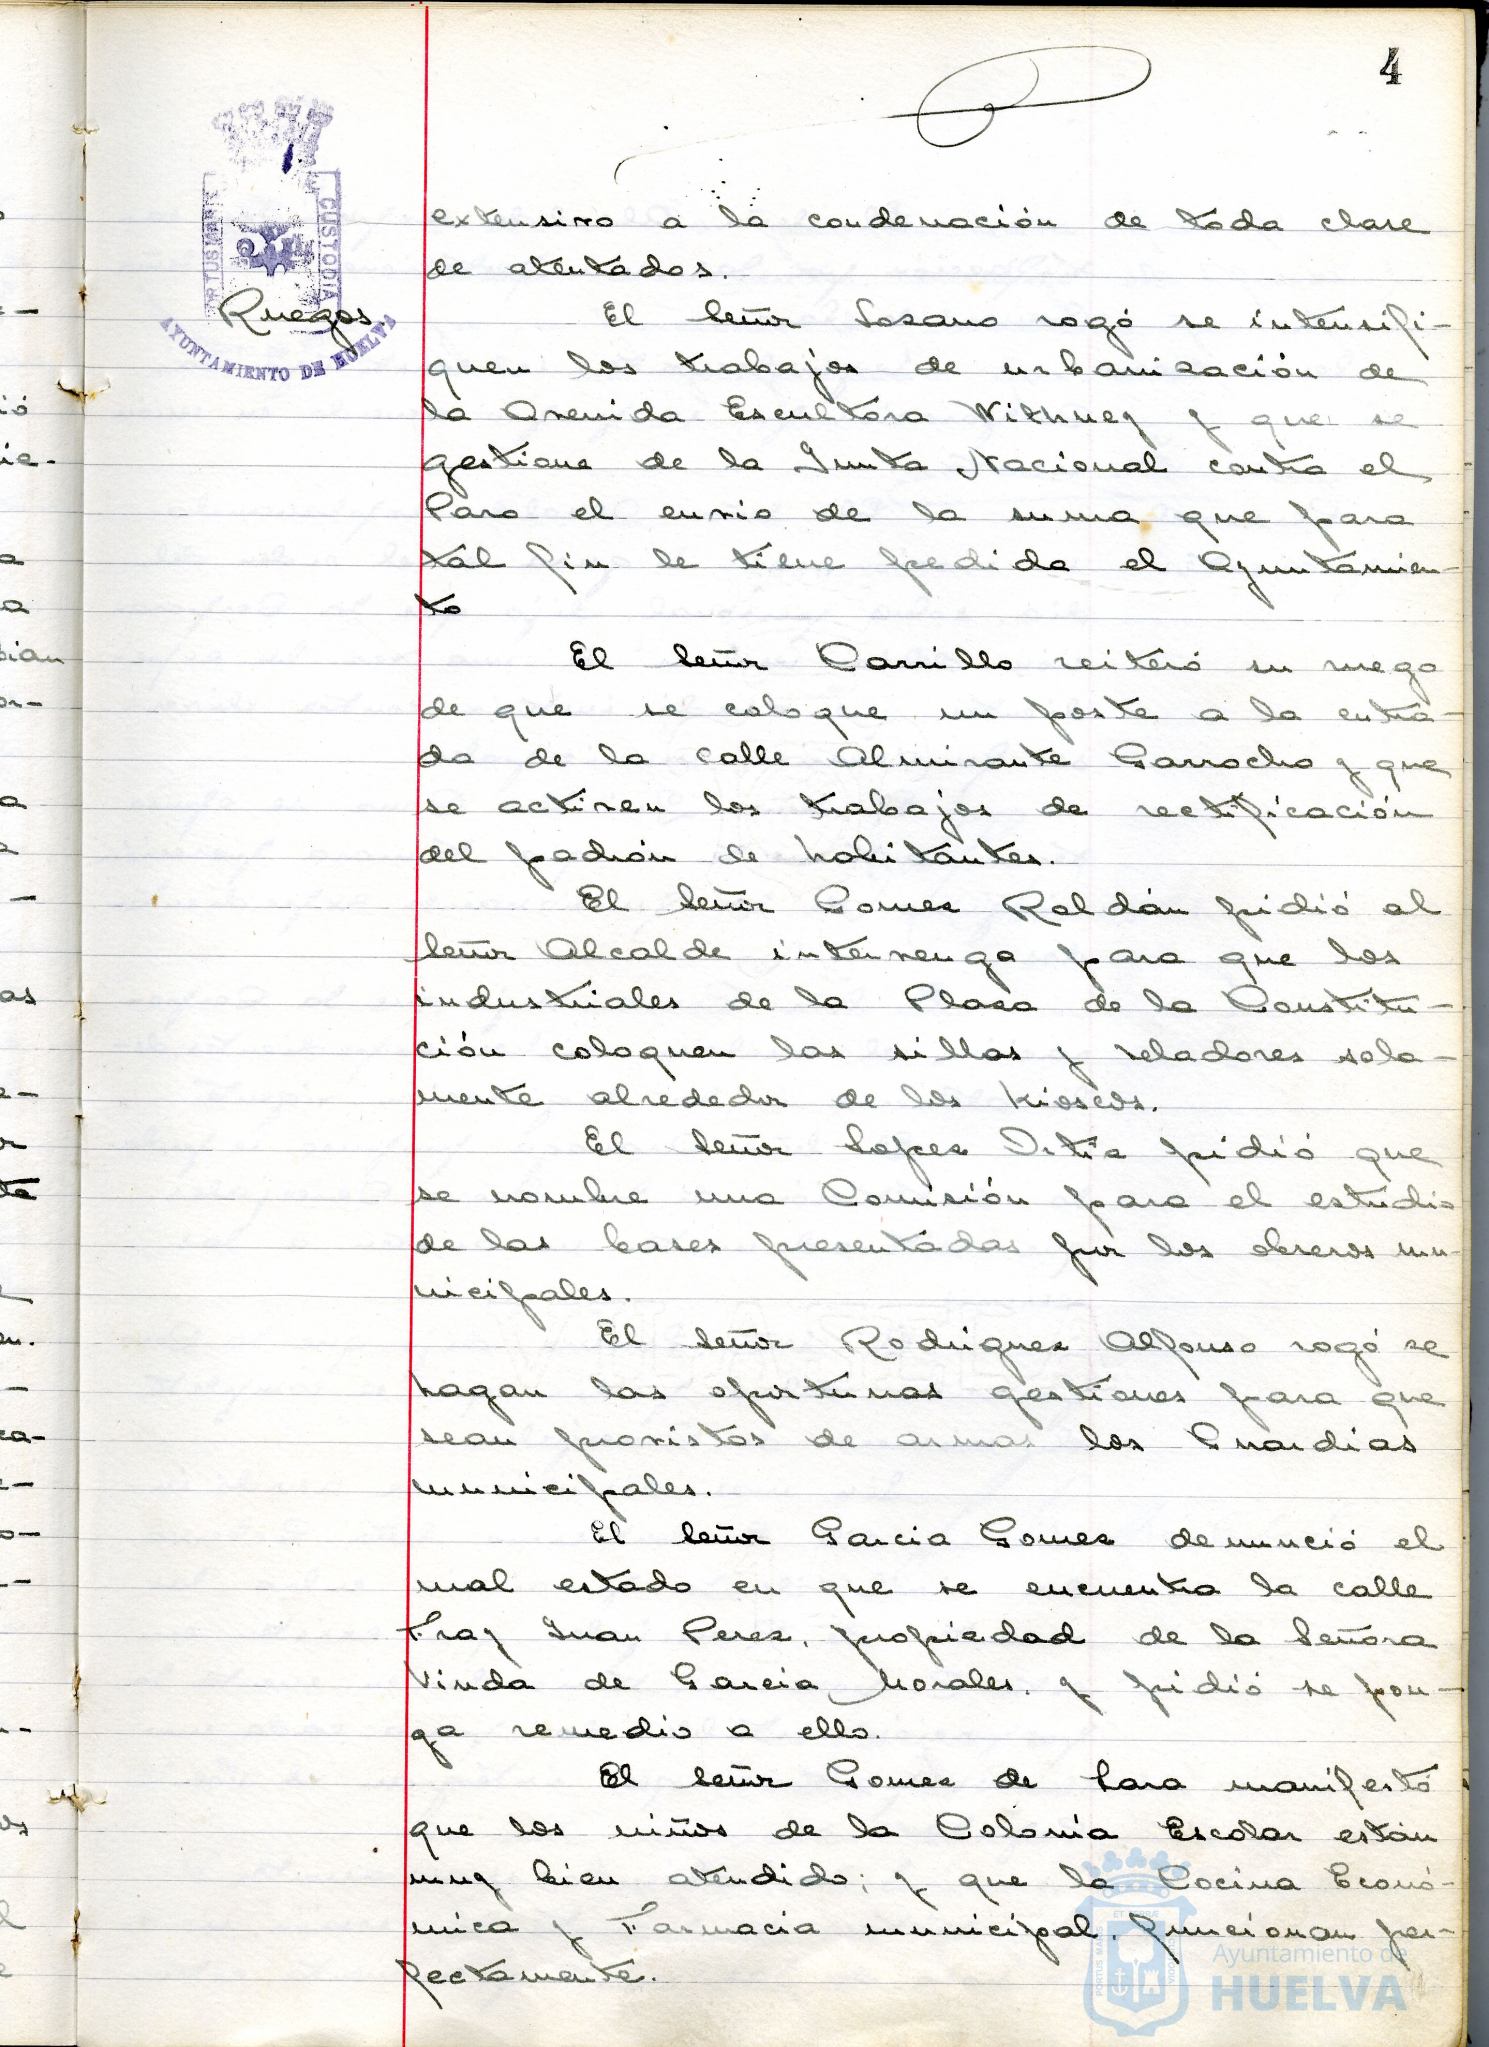 4
extensivo a la condenación de toda clase
de atentados.
Ruegos
PORTUS MARIS
CUSTODIA
AYUNTAMIENTO DE HUELVA
El Señor Lozano rogó se intensifi-
quen los trabajos de urbanización de
la Avenida Escultora Withney y que se
gestione de la Junta Nacional contra el
Paro el envio de la suma que para
tal fin le tiene pedida el Ayuntamien-
to
El Señor Carrillo reiteró su ruego
de que se coloque un poste a la entra-
da de la calle Almirante Garrocho y que
se activen los trabajos de rectificación
del padrón de habitantes.
El Señor Gomez Roldán pidió al
Señor Alcalde intervenga para que los
industriales de la Plaza de la Constitu-
ción coloquen las sillas y veladores sola-
mente alrededor de los kioscos.
El Señor Lopez Ortiz pidió que
se nombre una Comisión para el estudio
de las bases presentadas por los obreros mu-
nicipales.
El Señor Rodriguez Alfonso rogó se
hagan las oportunas gestiones para que
sean provistos de armas los Guardias
municipales.
El Señor Garcia Gomez denunció el
mal estado en que se encuentra la calle
Fray Juan Perez, propiedad de la Señora
Viuda de Garcia Morales, y pidió se pon-
ga remedio a ello.
El Señor Gomez de Lara manifestó
que los niños de la Colonia Escolar están
muy bien atendido; y que la Cocina Econó-
mica y Farmacia municipal, funcionan per-
fectamente.
Ayuntamiento de
HUELVA